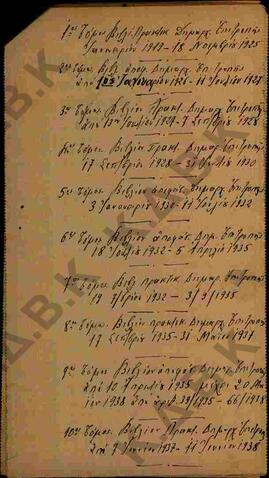 1ος Τόμος Βιβλ. Πρακτικ. Δημαρχ. Επιτροπής
Ιανουαρίου 1919 - 18 Νοεμβρ. 1925
2ος Τόμος Βιβ. αποφ. Δημαρχ. Επιτροπής
από Ιανουαρίου 1926 - 11 Ιουλίου 1927
3ος Τόμος Βιβλίον Πρακτ. Δημαρ. Επιτροπ.
Ιουλίου 1927 - 9 Σεπτεβρ. 1928
4ος Τόμος Βιβλίον Πρακτ. Δημαρ. Επιτροπ.
17 Σεπτεβρίου 1928 - 1930
5ος Τόμος Βιβλίον αποφάσ. Δημαρχ. Επιτροπ.
3 Ιανουαρίου 1930 - 11 Ιουλίου 1932
6ος Τόμος Βιβλίον αποφάσ. Δημ. Επιτροπ.
18 Ιουλίου 1932 - 5 Απριλίου 1935
7ος Τόμος Βιβ. πρακτικ. Δημαρ. Επιτροπ.
19 1932 - 3/9/1935
8ος Τόμος Βιβλίον πρακτικ. Δημαρχ. Επιτροπ.
17 Σεπτεβρ. 1935 - 31 Μαΐου 1937
9ος Τόμος Βιβλίον αποφάσ. Δημαρ. Επιτροπ.
από 10 Απριλίου 1935 μέχρι 20 Μαΐου
1938 από αριθ. 39/1935 - 66/1938
10ος Τόμος Βιβλίον Πρακτ. Δημαρχ. Επιτροπ.
από 7 Ιουνίου 1937 - 11 Ιουνίου 1938
Κ.Δ.Β.Κ